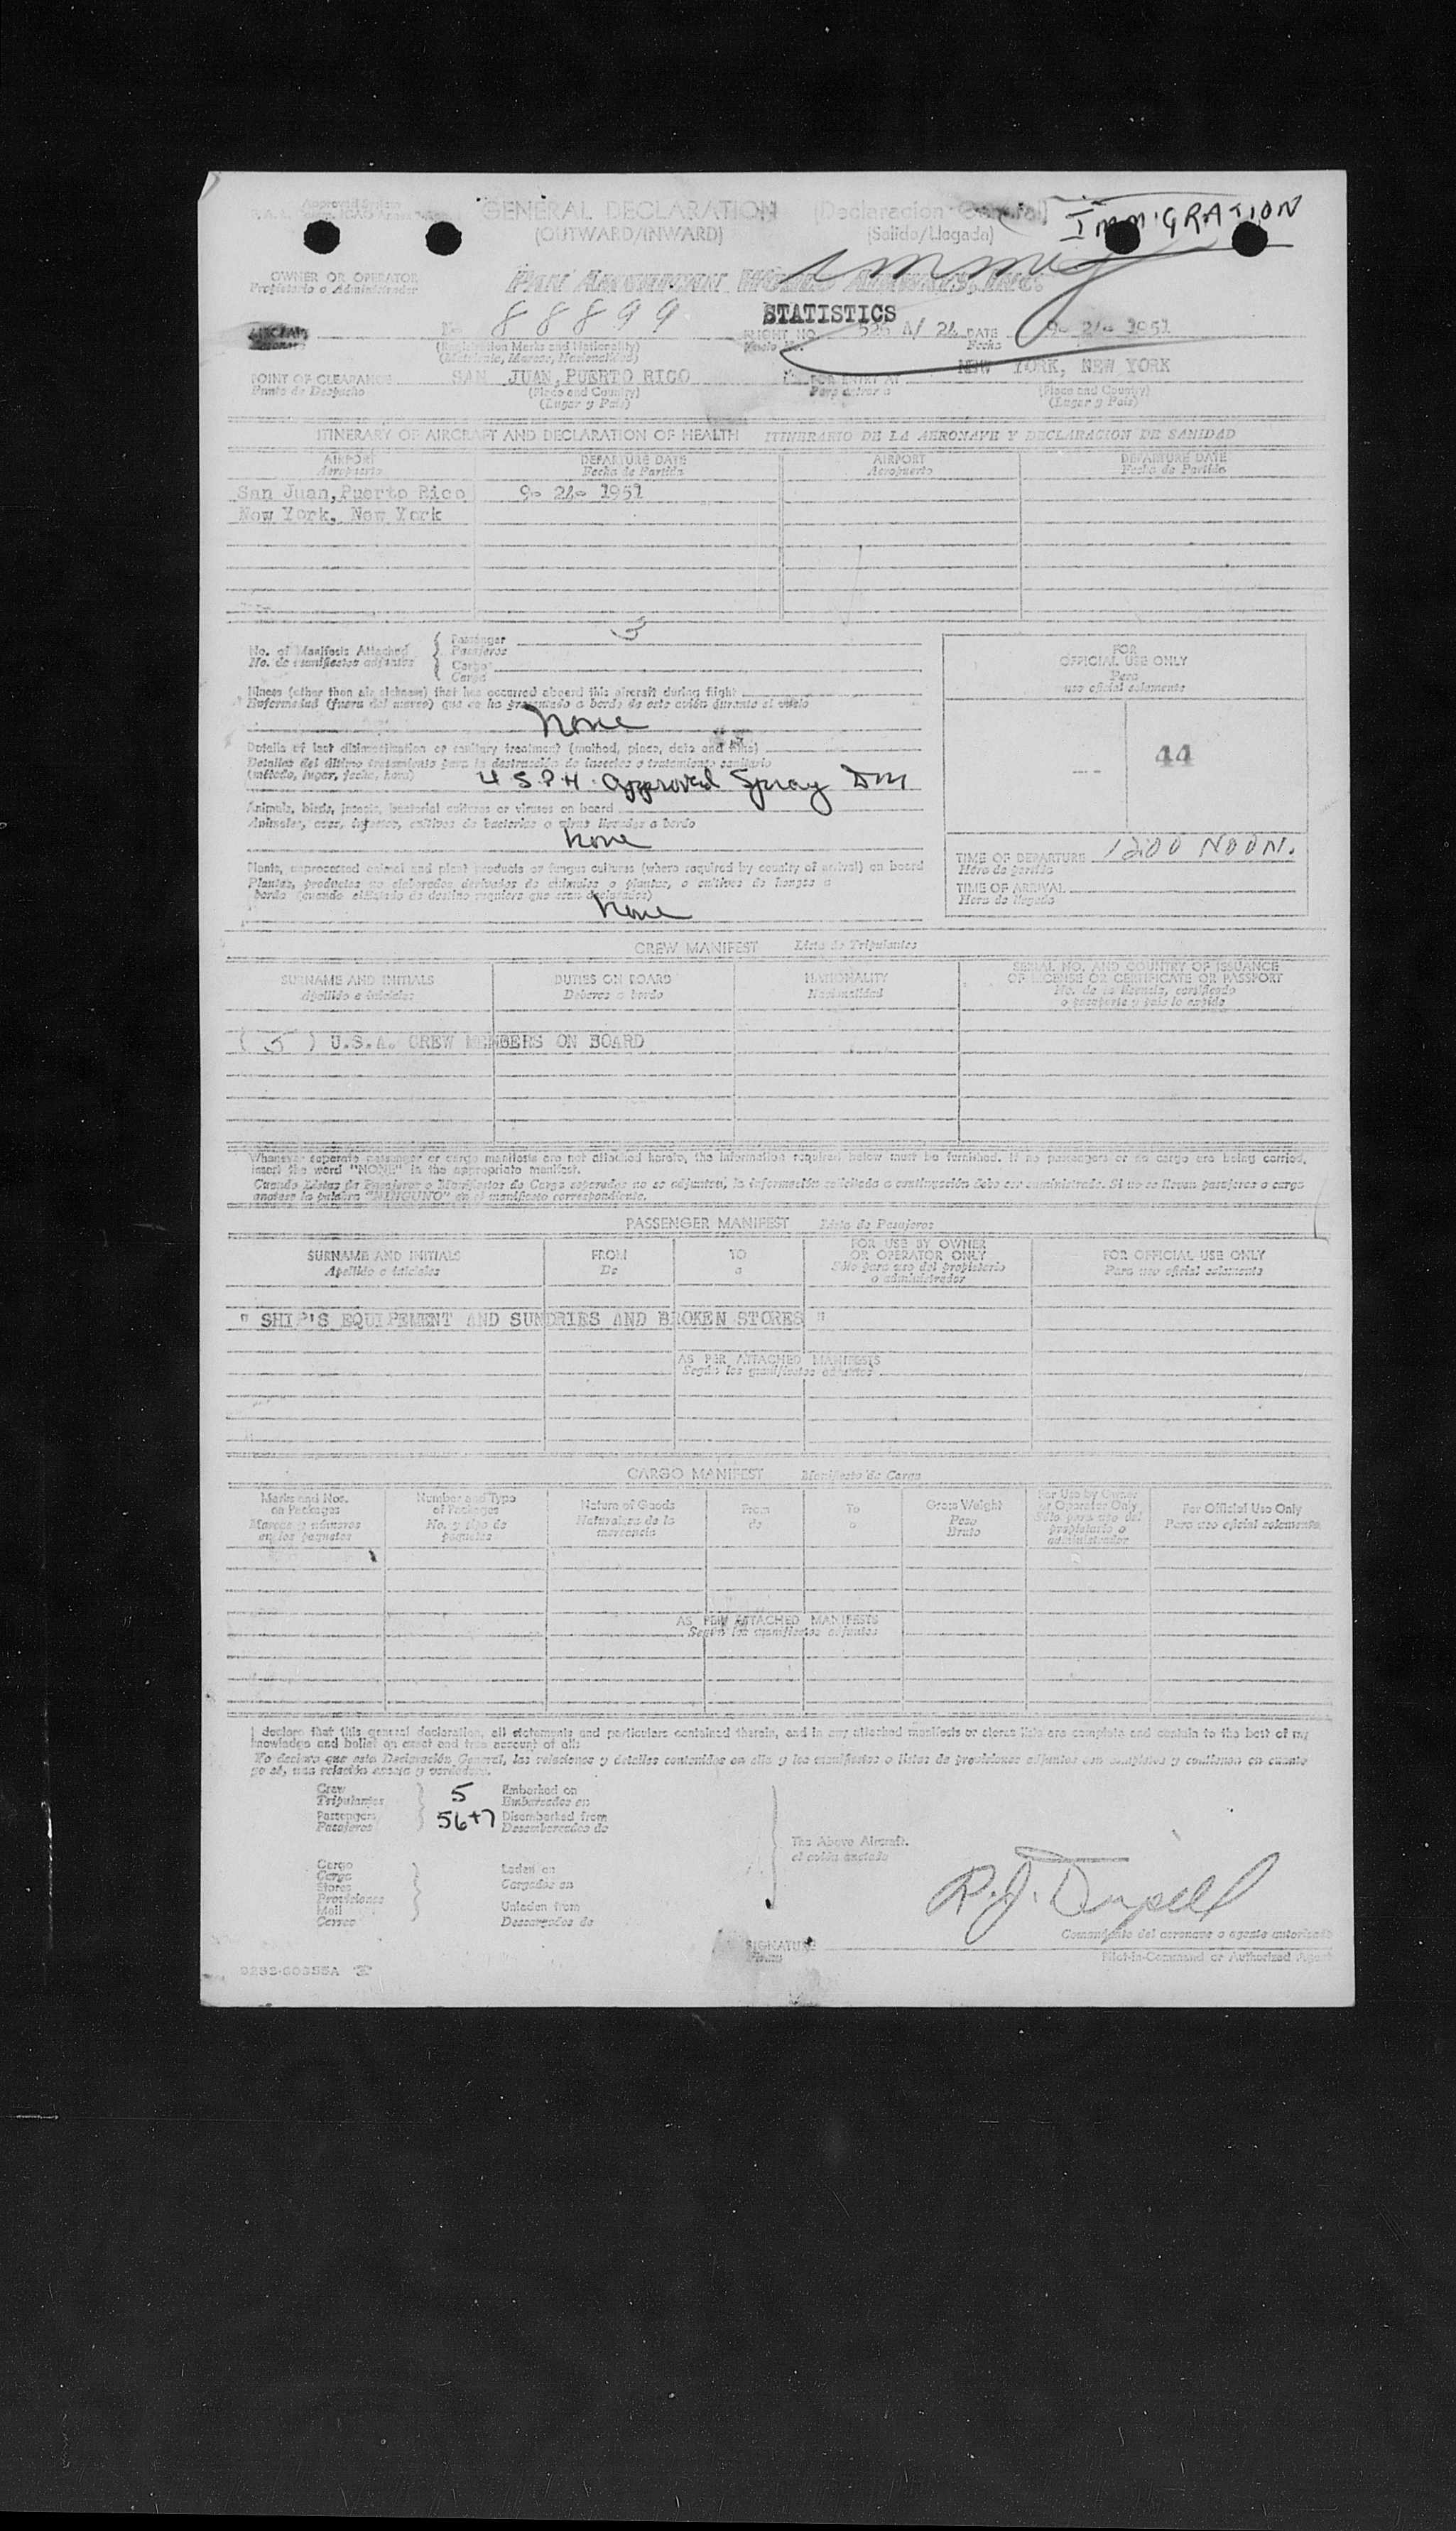 Approved System
GENERAL DECLARATION (Declaracion General) IMMIGRATION
(OUTWARD/INWARD) (Salida/Llegada)
OWNER OR OPERATOR PAN AMERICAN WORLD AIRWAYS, INC. Immig
Propietario o Administrador
STATISTICS
AIRCRAFT N- 88899 FLIGHT NO. 526 A/ 24 DATE 9- 24- 1951
(Registration Marks and Nationality) Vuelo No. Fecha
(Matricula, Marcas, Nacionalidad)
POINT OF CLEARANCE SAN JUAN, PUERTO RICO FOR ENTRY AT NEW YORK, NEW YORK
Punto de Despacho (Place and Country) Para entrar a (Place and Country)
(Lugar y Pais) (Lugar y Pais)
ITINERARY OF AIRCRAFT AND DECLARATION OF HEALTH ITINERARIO DE LA AERONAVE Y DECLARACION DE SANIDAD
AIRPORT DEPARTURE DATE AIRPORT DEPARTURE DATE
Aeropuerto Fecha de Partida Aeropuerto Fecha de Partida
San Juan, Puerto Rico 9- 24- 1951
New York, New York
No. of Manifests Attached Passenger 3
No. de manifiestos adjuntos Pasajeros
Cargo
Carga
FOR
OFFICIAL USE ONLY
Para
uso oficial solamente
Illness (other than air sickness) that has occurred aboard this aircraft during flight
Enfermedad (fuera del mareo) que se ha presentado a bordo de este avión durante el vuelo
None
Details of last disinsectization or sanitary treatment (method, place, date and time)
Detalles del último tratamiento para la destrucción de insectos o tratamiento sanitario
(método, lugar, fecha, hora) U.S.P.H. Approved Spray DM
44
Animals, birds, insects, bacterial cultures or viruses on board
Animales, aves, insectos, cultivos de bacterias o virus llevados a bordo
None
Plants, unprocessed animal and plant products or fungus cultures (where required by country of arrival) on board
Plantas, productos no elaborados derivados de animales o plantas, o cultivos de hongos a
bordo (cuando el Estado de destino requiera que sean declarados)
None
TIME OF DEPARTURE 12:00 NOON.
Hora de partida
TIME OF ARRIVAL
Hora de llegada
CREW MANIFEST Lista de Tripulantes
SURNAME AND INITIALS DUTIES ON BOARD NATIONALITY SERIAL NO. AND COUNTRY OF ISSUANCE
OF LICENSE OR CERTIFICATE OR PASSPORT
Apellido e iniciales Deberes a bordo Nacionalidad No. de su licencia, certificado
o pasaporte y pais lo expide
( 5 ) U.S.A. CREW MEMBERS ON BOARD
Whenever separate passenger or cargo manifests are not attached hereto, the information required below must be furnished. If no passengers or no cargo are being carried,
insert the word "NONE" in the appropriate manifest.
Cuando Listas de Pasajeros o Manifiestos de Carga separados no se adjunten, la información solicitada a continuación debe ser suministrada. Si no se llevan pasajeros o carga
anótese la palabra "NINGUNO" en el manifiesto correspondiente.
PASSENGER MANIFEST Lista de Pasajeros
SURNAME AND INITIALS FROM TO FOR USE BY OWNER
OR OPERATOR ONLY FOR OFFICIAL USE ONLY
Apellido e iniciales De a Sólo para uso del propietario
o administrador Para uso oficial solamente
" SHIP'S EQUIPEMENT AND SUNDRIES AND BROKEN STORES "
AS PER ATTACHED MANIFESTS
Según los manifiestos adjuntos
CARGO MANIFEST Manifiesto de Carga
Marks and Nos.
on Packages
Marcas y números
en los paquetes
Number and Type
of Packages
No. y tipo de
paquetes
Nature of Goods
Naturaleza de la
mercancia
From
de
To
a
Gross Weight
Peso
Bruto
For Use by Owner
or Operator Only
Sólo para uso del
propietario o
administrador
For Official Use Only
Para uso oficial solamente
AS PER ATTACHED MANIFESTS
Según los manifiestos adjuntos
I declare that this general declaration, all statements and particulars contained therein, and in any attached manifests or stores lists are complete and contain to the best of my
knowledge and belief an exact and true account of all:
Yo declaro que esta Declaración General, las relaciones y detalles contenidos en ella y los manifiestos o listas de provisiones adjuntos son completos y contienen en cuanto
yo sé, una relación exacta y verdadera.
Crew 5 Embarked on
Tripulantes Embarcados en
Passengers 56+7 Disembarked from
Pasajeros Desembarcados de
The Above Aircraft.
el avión anotado
Cargo Laden on
Carga Cargados en
Stores
Provisiones
Mail Unladen from
Correo Descargados de
SIGNATURE
Firma
Comandante del aeronave o agente autorizado
Pilot-in-Command or Authorized Agent